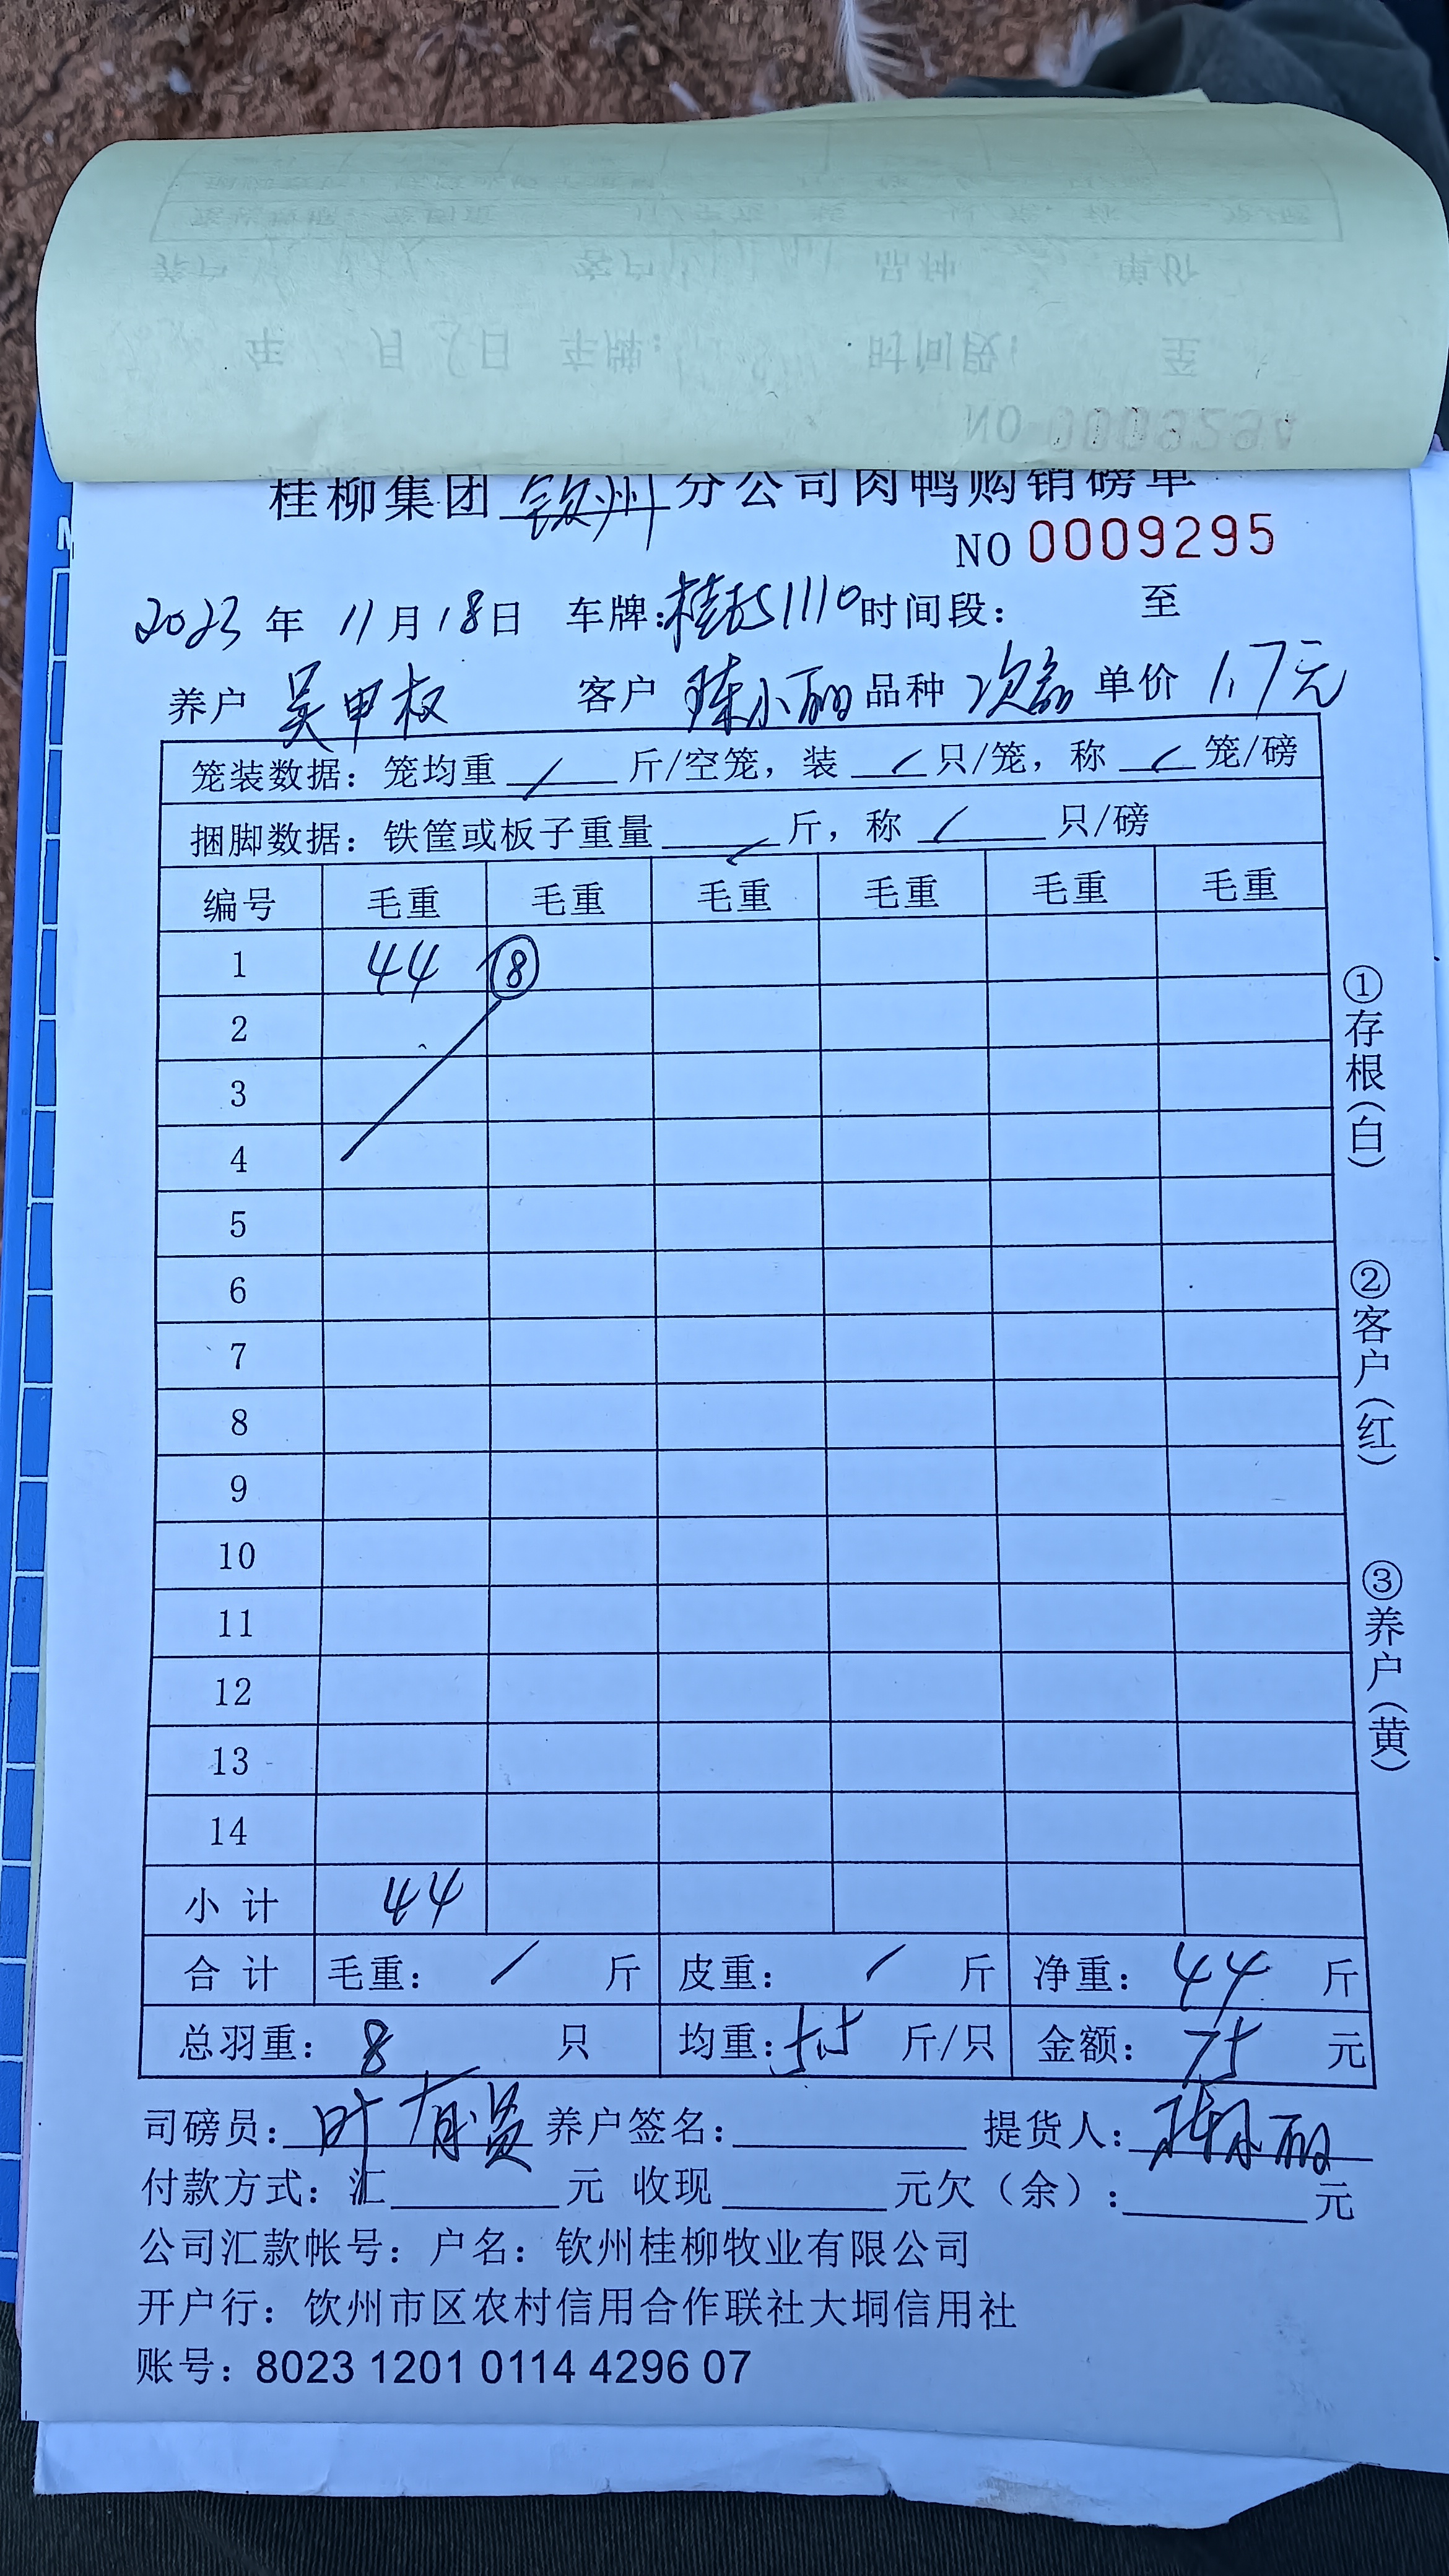 桂柳集团 钦州 分公司肉鸭购销磅单
NO 0009295
2023 年 11 月 18 日 车牌: 1110 时间段: 至
养户 吴甲权 客户 陈小丽 品种 次品 单价 1.7元
笼装数据: 笼均重 / 斤/空笼, 装 / 只/笼, 称 / 笼/磅
捆脚数据: 铁筐或板子重量 / 斤, 称 / 只/磅
编号 毛重 毛重 毛重 毛重 毛重 毛重
1 44 ⑧
2
3
4
5
6
7
8
9
10
11
12
13
14
小计 44
合计 毛重: / 斤 皮重: / 斤 净重: 44 斤
总羽重: 8 只 均重: 5.5 斤/只 金额: 75 元
司磅员: 叶有贵 养户签名: 提货人: 陈小丽
付款方式: 汇 元 收现 元欠(余): 元
公司汇款帐号: 户名: 钦州桂柳牧业有限公司
开户行: 钦州市区农村信用合作联社大垌信用社
账号: 8023 1201 0114 4296 07
①存根(白)
②客户(红)
③养户(黄)